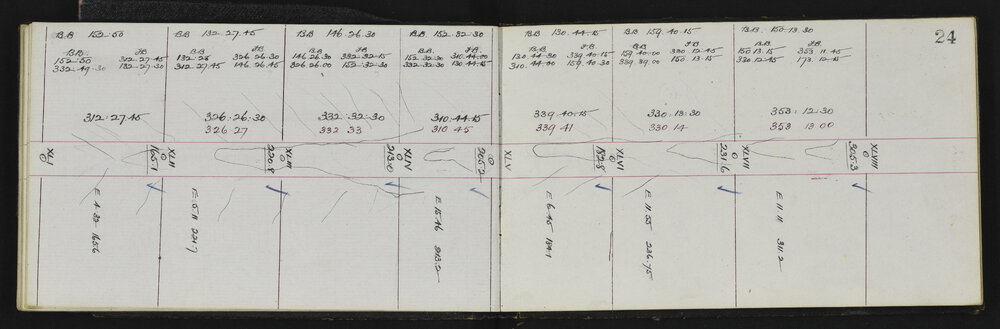 24
B.B 152.50
B.B. F.B.
152.50 312.27.45
332.49.30 132.27.30
312.27.45
B.B 132.27.45
B.B. F.B.
132.28 326.26.30
312.27.45 146.26.45
326.26.30
326 27
B.B 146.26.30
B.B F.B.
146.26.30 332.32.15
326.26.00 152.32.30
332.32.30
332 33
B.B. 152.32.30
B.B. F.B.
152.32.30 310.44.00
332.32.30 130.44.15
310.44.15
310 45
B.B. 130.44.15
B.B. F.B.
130.44.30 339.40.15
310.44.00 159.40.30
339.40.15
339 41
B.B 159.40.15
B.B F.B.
159.40.00 330.12.45
339.39.00 150.13.15
330.13.30
330 14
B.B. 150.13.30
B.B. F.B.
150.13.15 353.11.45
330.12.45 173.12.15
353.12.30
353 13 00
XLI
165.1
XLII
220.8
XLIII
213.0
XLIV
205.2
XLV
182.8
XLVI
231.6
XLVII
305.3
XLVIII
E 4.32 165.6
E 5.11 221.7
E 15.46 213.2
E 6.45 184.1
E 11.55 236.75
E 11.11 311.2